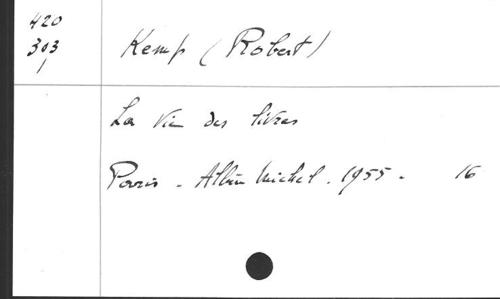 420
303
1
Kemp (Robert)
La Vie des livres
Paris - Albin Michel. 1955 - 16